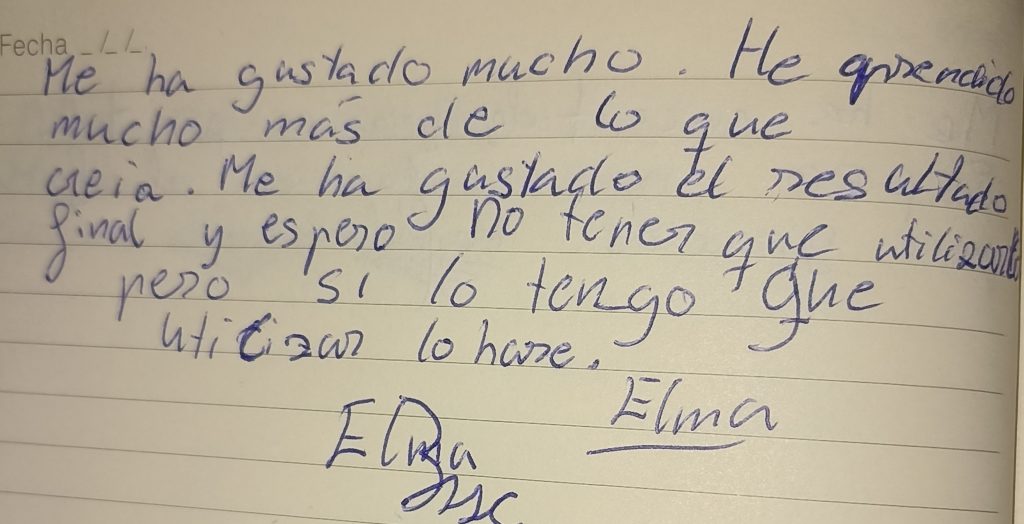 Fecha _/_/_
Me ha gustado mucho. He aprendido
mucho más de lo que
creia. Me ha gustado el resultado
final y espero no tener que utilizarlo
pero si lo tengo que
utilizar lo hare.
Elma
Elma